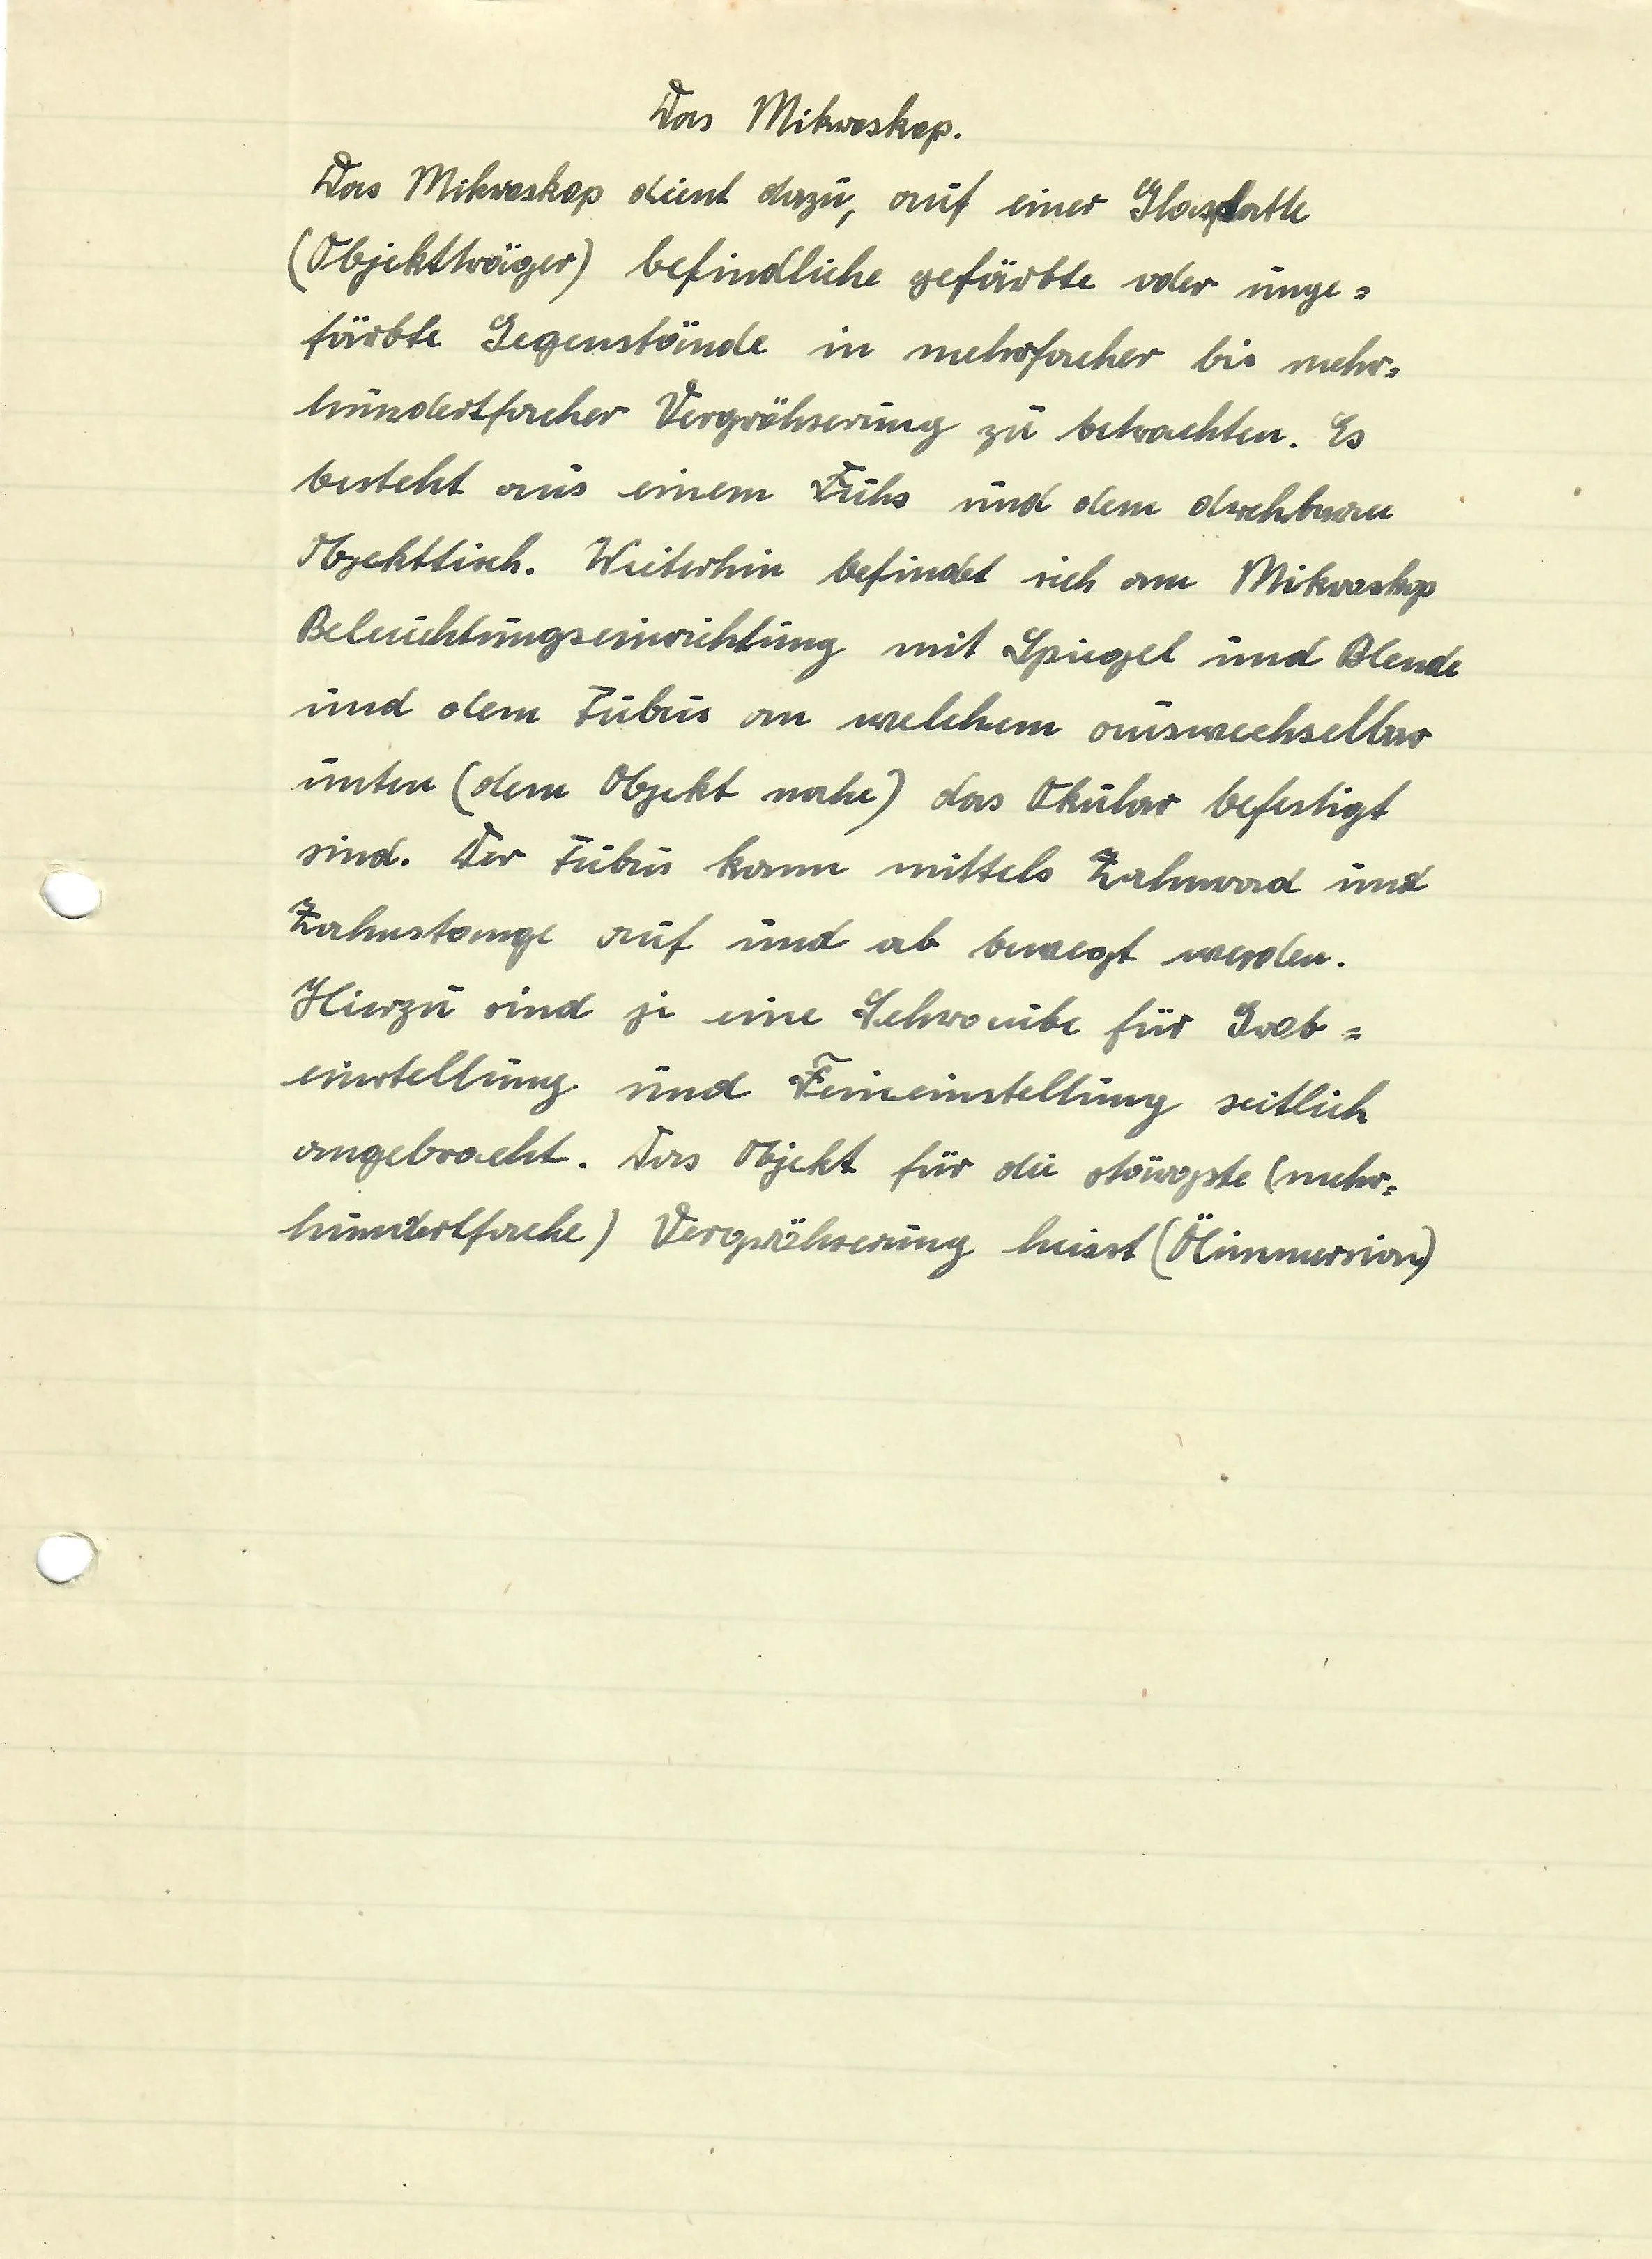 Das Mikroskop.
Das Mikroskop dient dazu, auf einer Glasplatte
(Objektträger) befindliche gefärbte oder unge=
färbte Gegenstände in mehrfacher bis mehr=
hundertfacher Vergröhserung zu betrachten. Es
besteht aus einem Fuhs und dem drehbaren
Objekttisch. Weiterhin befindet sich am Mikroskop
Beleuchtungseinrichtung mit Spiegel und Blende
und dem Tubus an welchem auswechselbar
unten (dem Objekt nahe) das Okular befestigt
sind. Der Tubus kann mittels Zahnrad und
Zahnstange auf und ab bewegt werden.
Hierzu sind je eine Schraube für Grob=
einstellung und Feineinstellung seitlich
angebracht. Das Objekt für die stärgste (mehr=
hundertfache) Vergröhserung heisst (Ölimmersion)